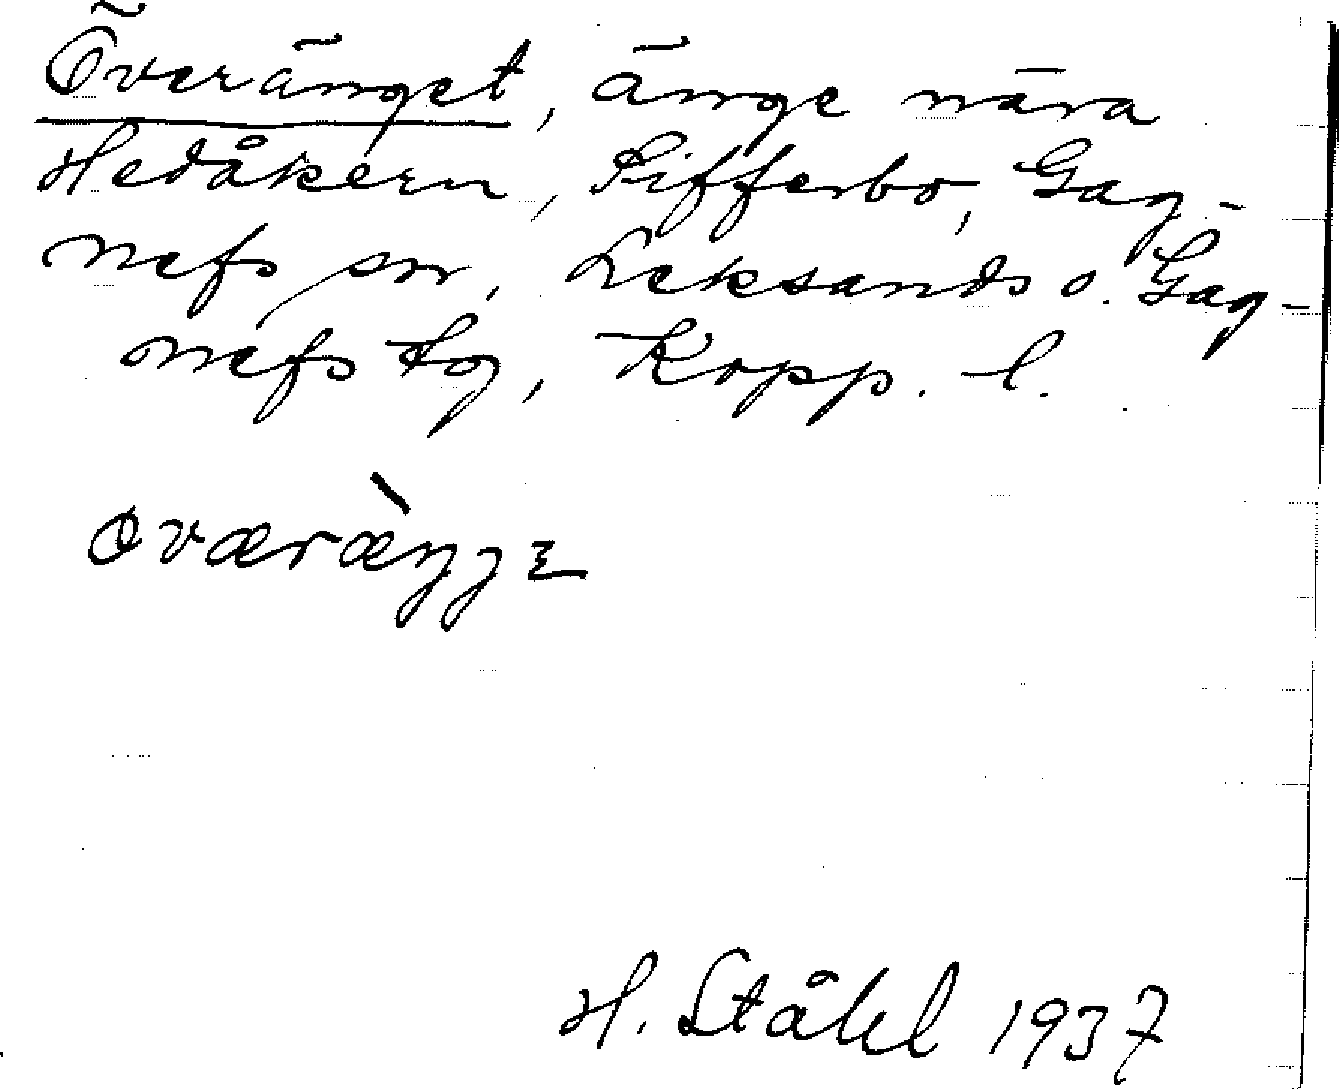 Överänget, änge nära
Hedåkern, Sifferbo, Gag-
nefs sn, Leksands o. Gag-
nefs tg, Kopp. l.
oværæ̀ŋɟɛ
H. Ståhl 1937